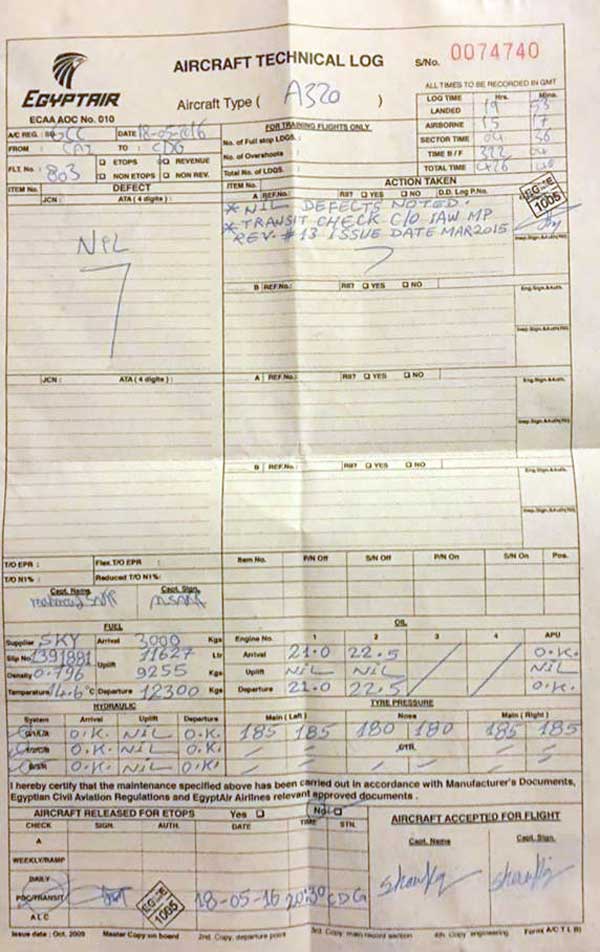 EGYPTAIR
ECAA AOC No. 010
AIRCRAFT TECHNICAL LOG S/No. 0074740
Aircraft Type ( A320 )
ALL TIMES TO BE RECORDED IN GMT
LOG TIME Hrs. Mins.
LANDED 19 53
AIRBORNE 15 17
SECTOR TIME 04 36
TIME B / F
TOTAL TIME
A/C REG. : DATE 18-05-2016
FROM : CAI TO : CDG
FLT. No : 803 ETOPS REVENUE
NON ETOPS NON REV.
FOR TRAINING FLIGHTS ONLY
No. of Full stop LDGS. :
No. of Overshoots :
Total No. of LDGS. :
ITEM No. DEFECT ITEM No. ACTION TAKEN
JCN : ATA ( 4 digits ) :
A REF.No.: RII? YES NO D.D. Log P.No.
NIL
* NIL DEFECTS NOTED.
* TRANSIT CHECK C/O IAW MP
REV. #13 ISSUE DATE MAR 2015
1005
B REF.No.: RII? YES NO
JCN : ATA ( 4 digits ) :
A REF.No.: RII? YES NO
B REF.No.: RII? YES NO
T/O EPR : Flex. T/O EPR :
T/O N1% : Reduced T/O N1% :
Item No. P/N Off S/N Off P/N On S/N On Pos.
Capt. Name Capt. Sign.
FUEL
Supplier SKY Arrival 3000 Kgs
Slip No 1391881 Uplift 11627 Ltr
Density 0.796 9255 Kgs
Temperature 14.6 °C Departure 12300 Kgs
OIL
Engine No. 1 2 3 4 APU
Arrival 21.0 22.5 / / O.K.
Uplift NIL NIL NIL
Departure 21.0 22.5 O.K.
HYDRAULIC
System Arrival Uplift Departure
O.K. NIL O.K.
O.K. NIL O.K.
O.K. NIL O.K.
TYRE PRESSURE
Main ( Left ) Nose Main ( Right )
185 185 180 180 185 185
CTR.
I hereby certify that the maintenance specified above has been carried out in accordance with Manufacturer's Documents,
Egyptian Civil Aviation Regulations and EgyptAir Airlines relevant approved documents .
AIRCRAFT RELEASED FOR ETOPS Yes No
CHECK SIGN. AUTH. DATE TIME STN.
A
WEEKLY/RAMP
DAILY
PDC/TRANSIT 1005 18-05-16 20:30 CDG
ALC
AIRCRAFT ACCEPTED FOR FLIGHT
Capt. Name Capt. Sign.
Issue date : Oct. 2009 Master Copy on board 2nd. Copy, departure point 3rd. Copy, main record section 4th. Copy engineering Form( A/C T L B)